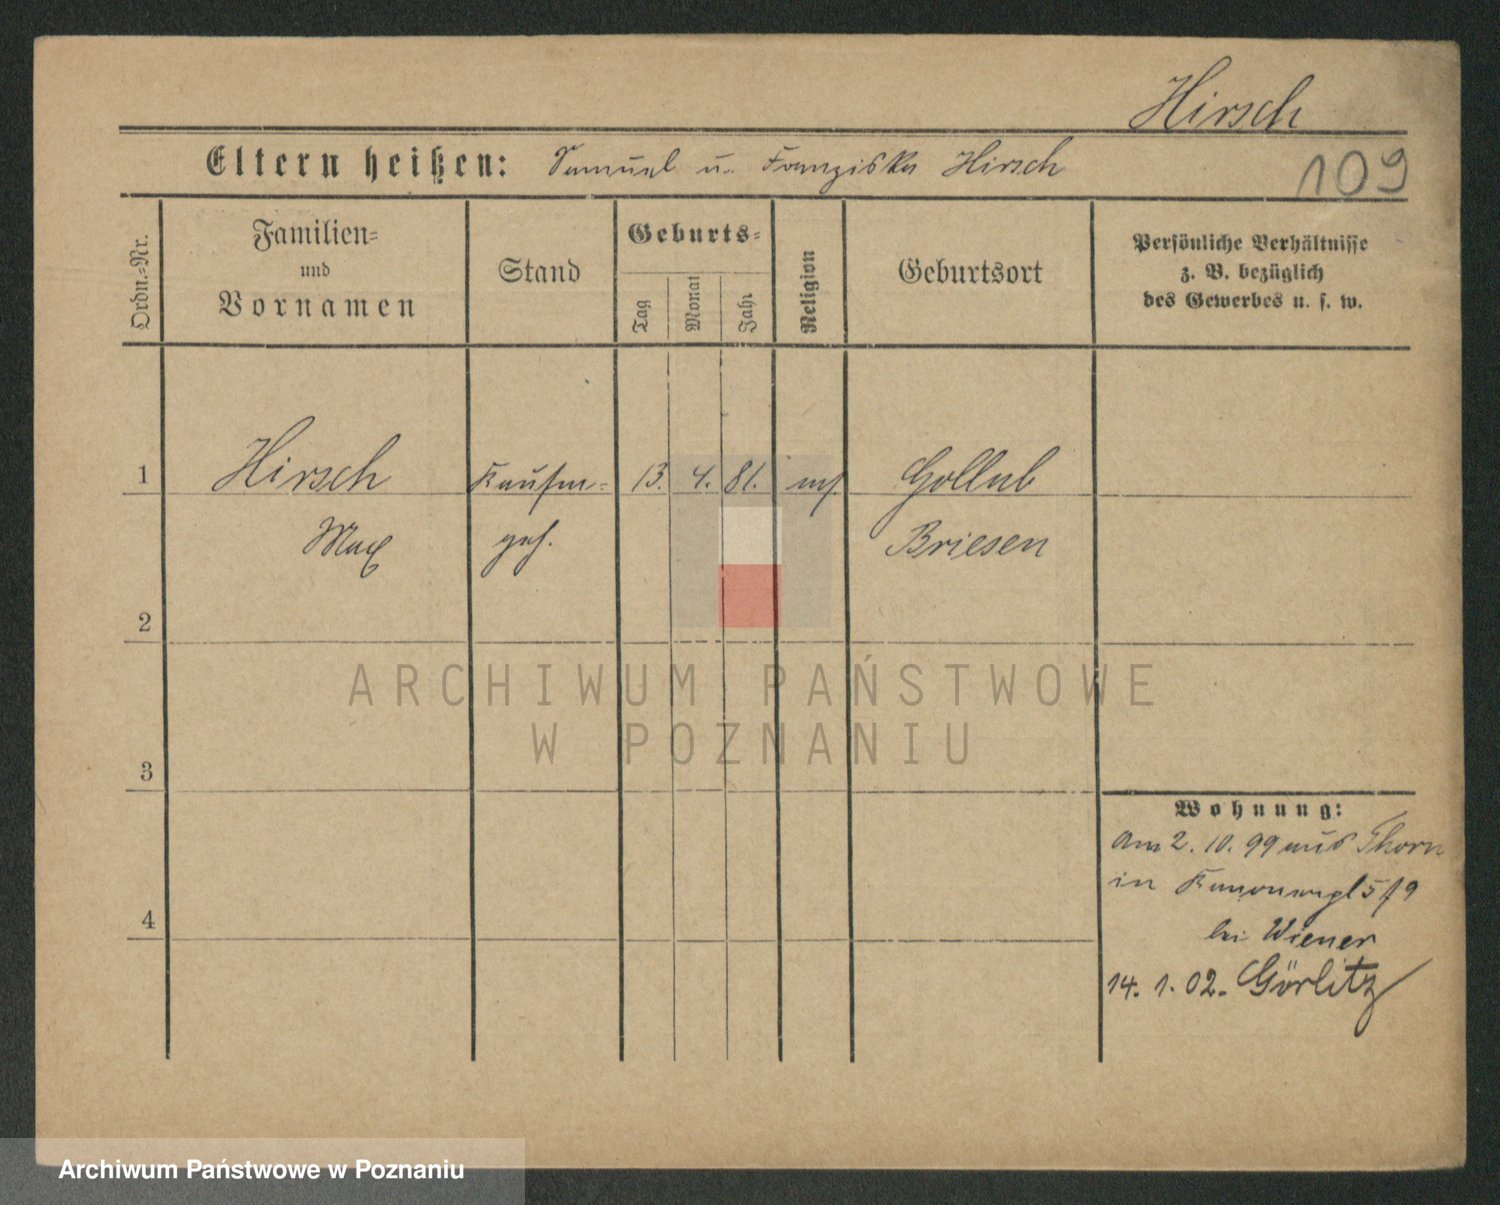 Hirsch
Eltern heißen: Samuel u. Franziska Hirsch
109
Ordn.-Nr.
Familien-
und
Vornamen
Stand
Geburts-
Tag
Monat
Jahr
Religion
Geburtsort
Persönliche Verhältnisse
z. B. bezüglich
des Gewerbes u. s. w.
1 Hirsch Kaufm- 13. 4. 81. Gollub
Max geh. Briesen
2
ARCHIWUM PAŃSTWOWE
W POZNANIU
3
Wohnung:
am 2. 10. 99 aus Thorn
in
4
bei Wiener
14. 1. 02. Görlitz
Archiwum Państwowe w Poznaniu